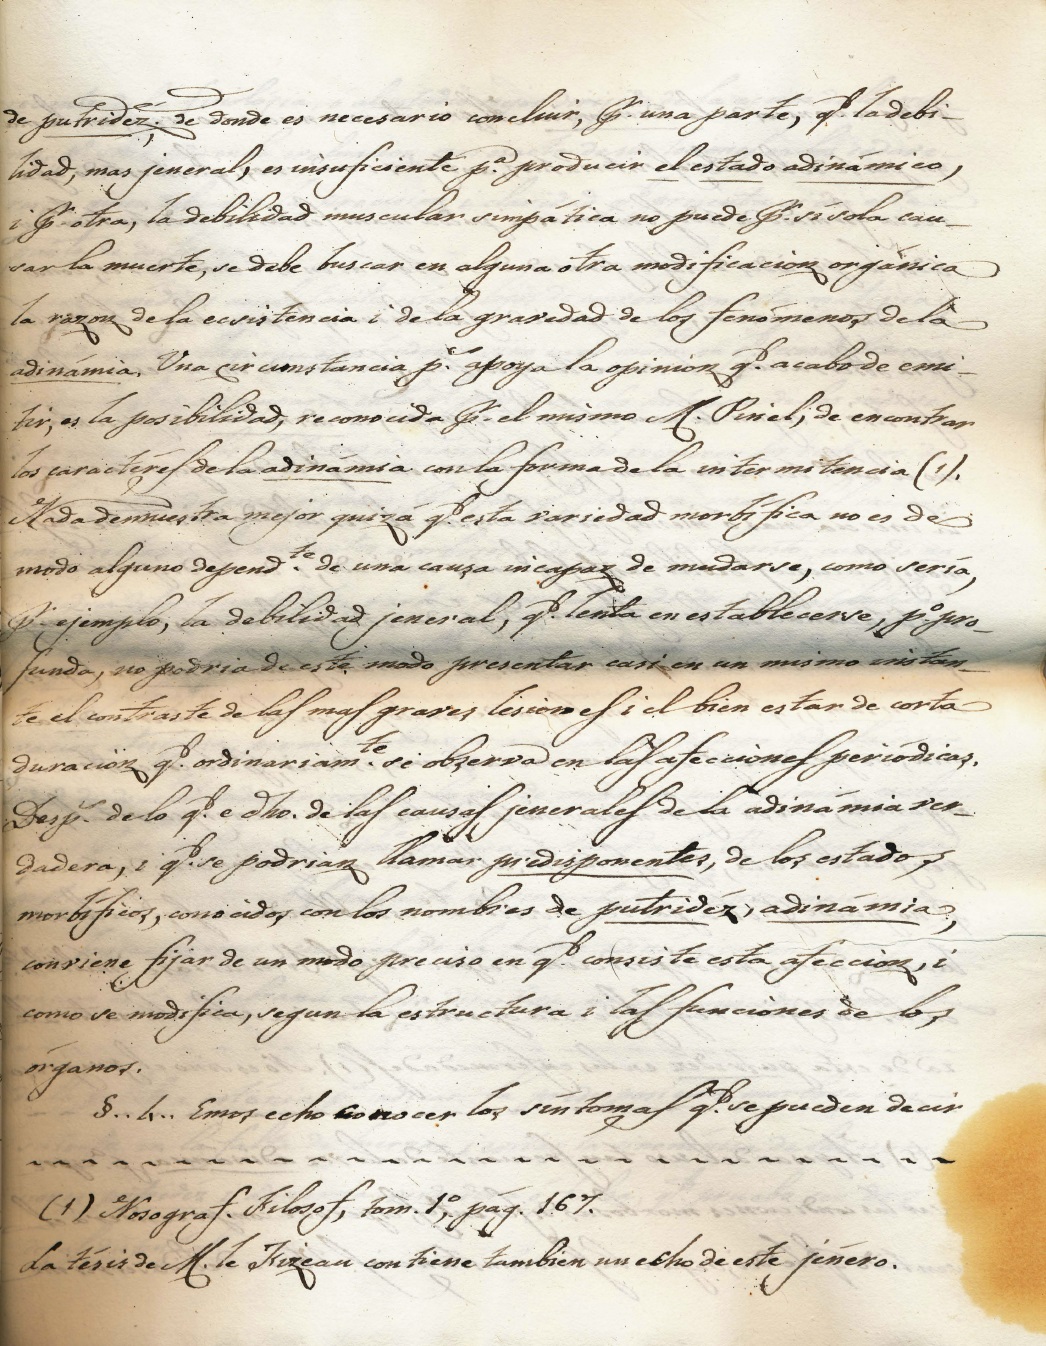 de putridéz; de donde es necesario concluir, pr. una parte, q.e la debi-
lidad, mas jeneral, es insuficiente p.a producir el estado adinámico,
i pr. otra, la debilidad muscular simpática no puede pr. sí sola cau-
sar la muerte, se debe buscar en alguna otra modificacion orgánica
la razon de la ecsistencia i de la gravedad de los fenómenos de la
adinámia. Una circunstancia q.e apoya la opinion q.e acabo de emi-
tir, es la posibilidad, reconocida pr. el mismo M. Pinel, de encontrar
los caractéres de la adinámia con la forma de la intermitencia (1).
Nada demuestra mejor quizá q.e esta variedad morbífica no es de
modo alguno depend.te de una causa incapaz de mudarse, como sería,
pr. ejemplo, la debilidad jeneral, q.e lenta en establecerse, p.o pro-
funda, no podria de este modo presentar casi en un mismo instan-
te el contraste de las mas graves lesiones i el bien estar de corta
duracion q.e ordinariam.te se observa en las afecciones periódicas.
Desp.s de lo q.e e dho. de las causas jenerales de la adinámia ver-
dadera, i q.e se podrian llamar predisponentes, de los estados
morbíficos, conocidos con los nombres de putridéz, adinámia,
conviene fijar de un modo preciso en q.e consiste esta afeccion, i
como se modifica, segun la estructura i las funciones de los
órganos.
§.. 4.. Emos echo conocer los síntomas q.e se pueden decir
(1) Nosograf. Filosof, tom. 1.o, pág. 167.
La tésis de M. le Fizeau contiene tambien un echo de este jénero.